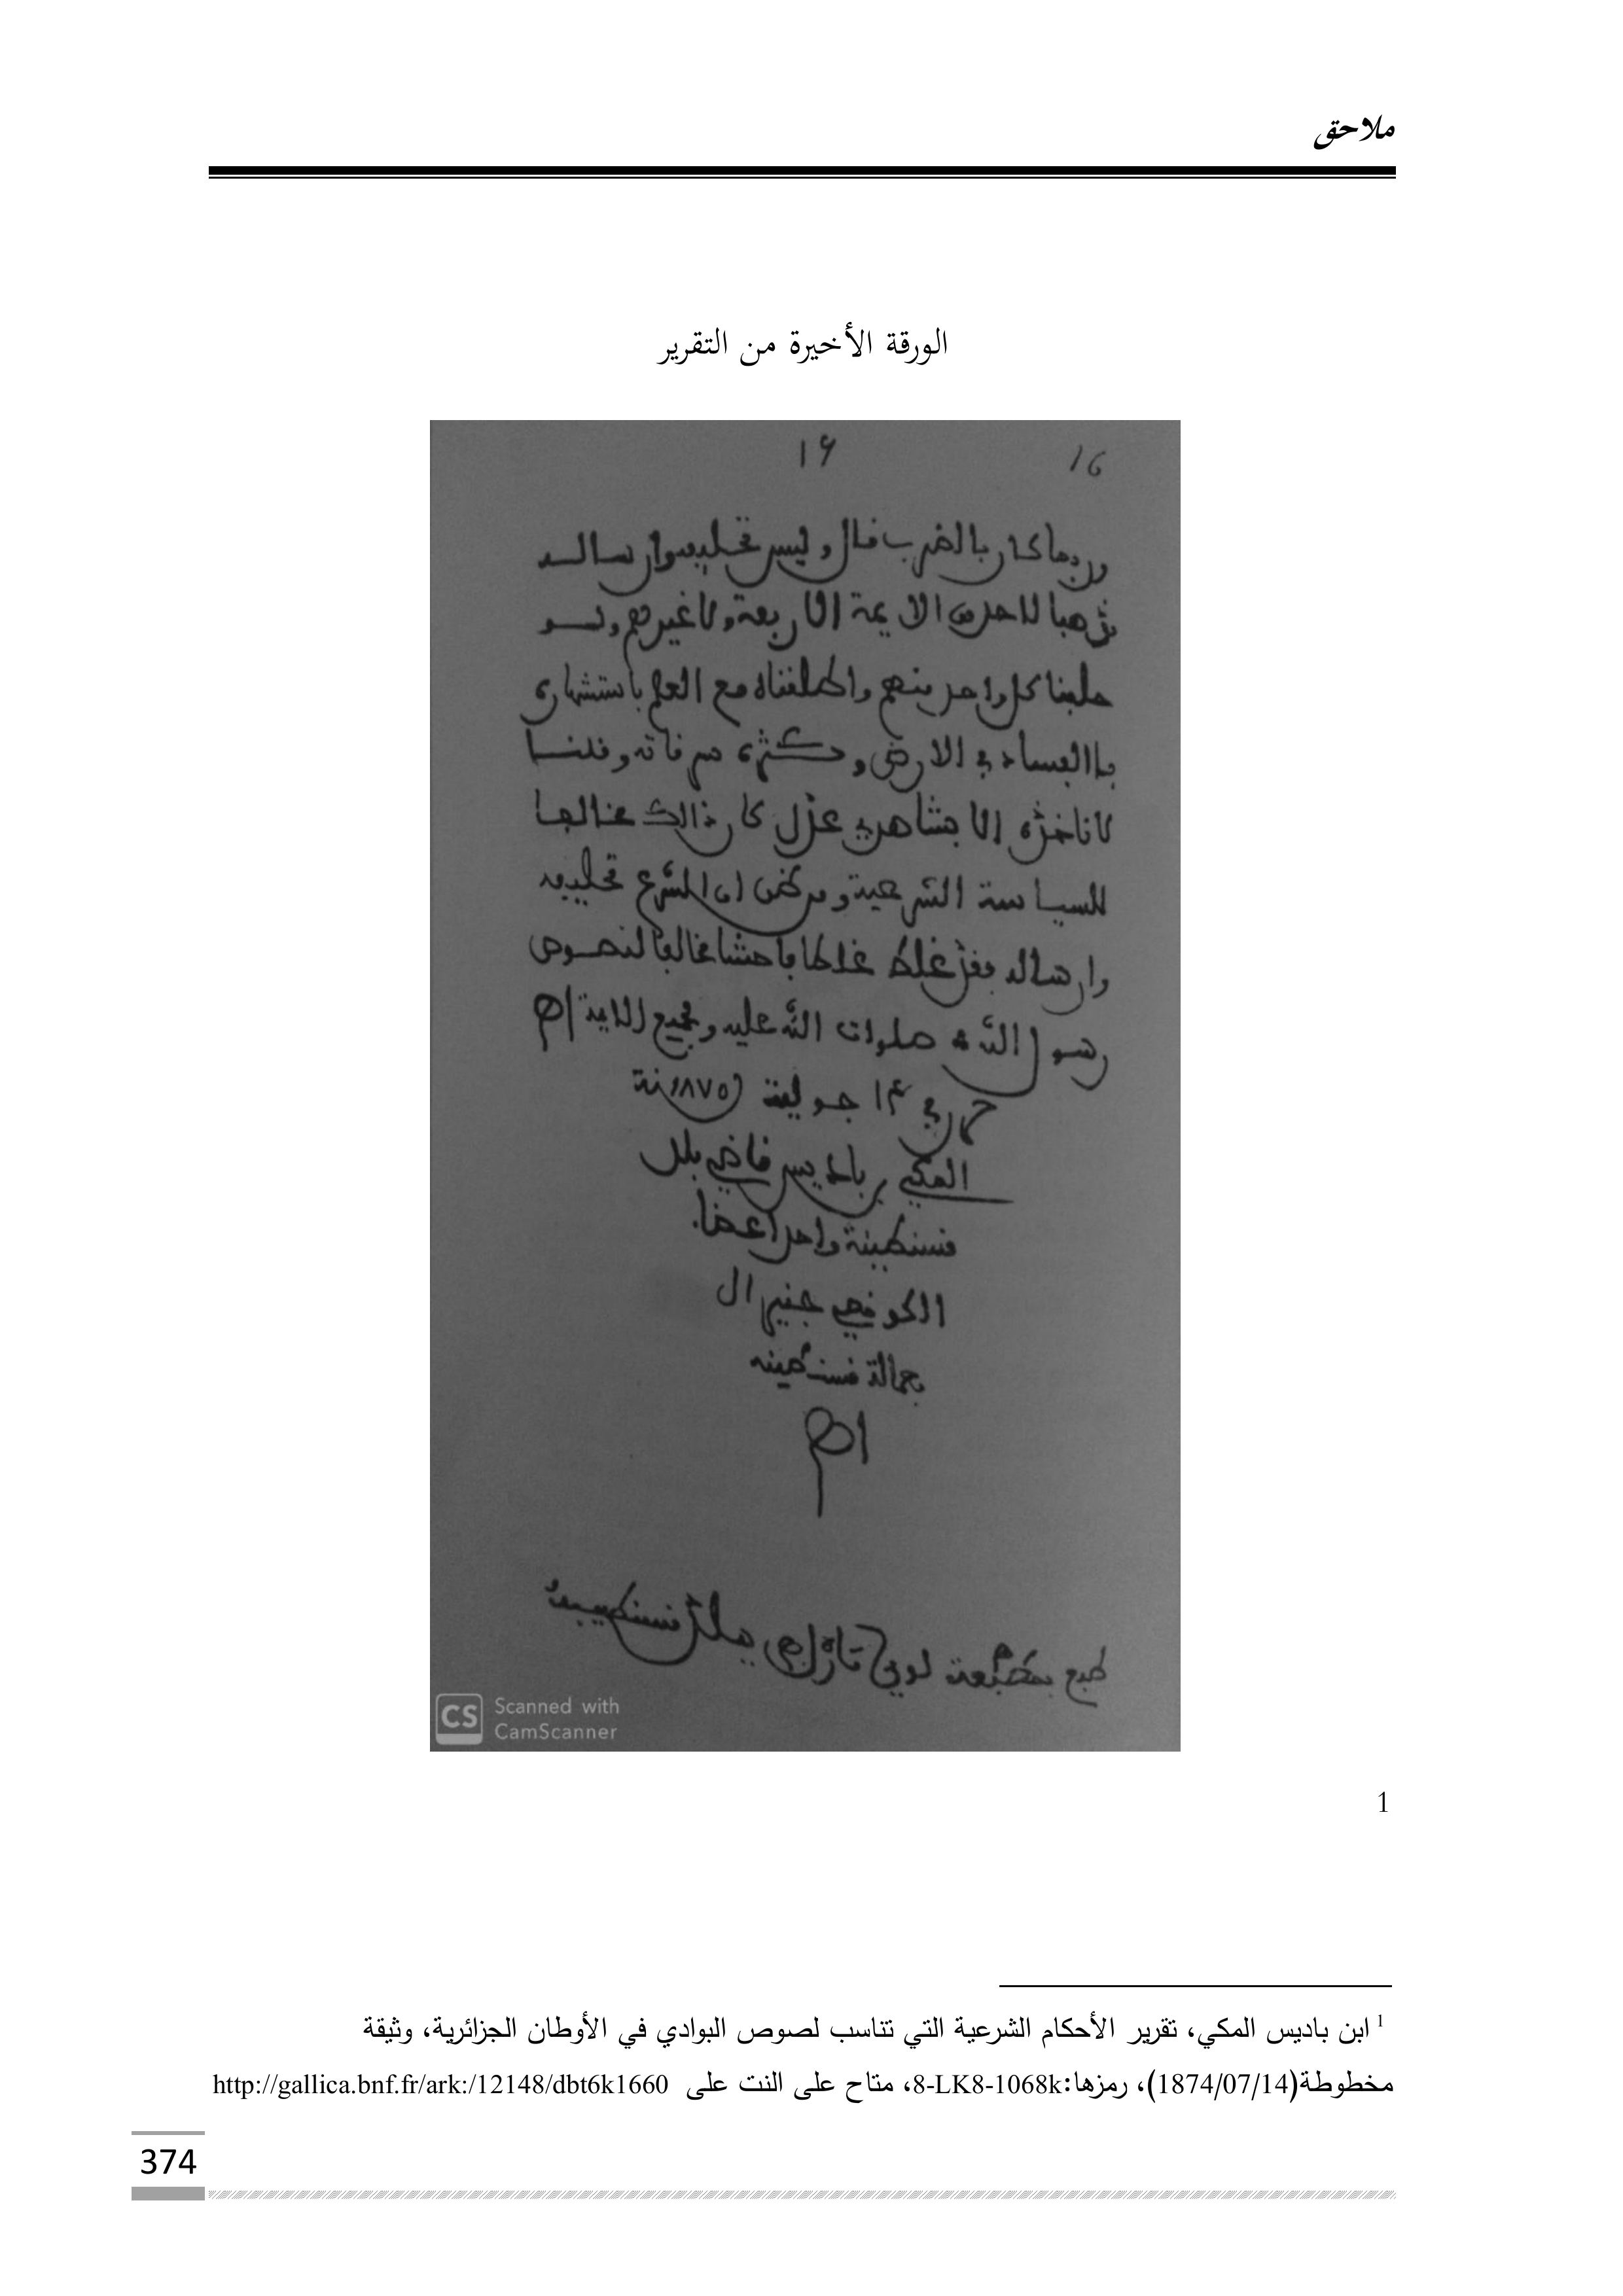 ملاحق
الورقة الأخيرة من التقرير
16 ١٦
وربما كان بالضرب قال وليس تحليفه وارساله
مذهبا لاحد من الايمة الاربعة ولا غيرهم ولو
حلفنا كل واحد منهم واطلقناه مع العلم باشتهاره
بالفساد في الارض وكثرة سرقاته وقلنا
لا ناخذه الا بشاهدي عدل كان ذالك مخالفا
للسياسة الشرعية ومن ظن ان الشرع تحليفه
وارساله فقد غلط غلطا فاحشا مخالفا لنصوص
رسول الله صلوات الله عليه وجميع الاية اه
حرر في ١٤ جولية سنة ١٨٧٥
المكي بن باديس قاضي بلد
قسنطينة واحد اعضاء
الكونصي جنيرال
بعمالة قسنطينه
اه
طبع بمطبعة لوي مارلي ببلد قسنطينة
CS Scanned with
CamScanner
1
1 ابن باديس المكي، تقرير الأحكام الشرعية التي تتاسب لصوص البوادي في الأوطان الجزائرية، وثيقة
مخطوطة(1874/07/14)، رمزها:8-LK8-1068k، متاح على النت على http://gallica.bnf.fr/ark:/12148/dbt6k1660
374